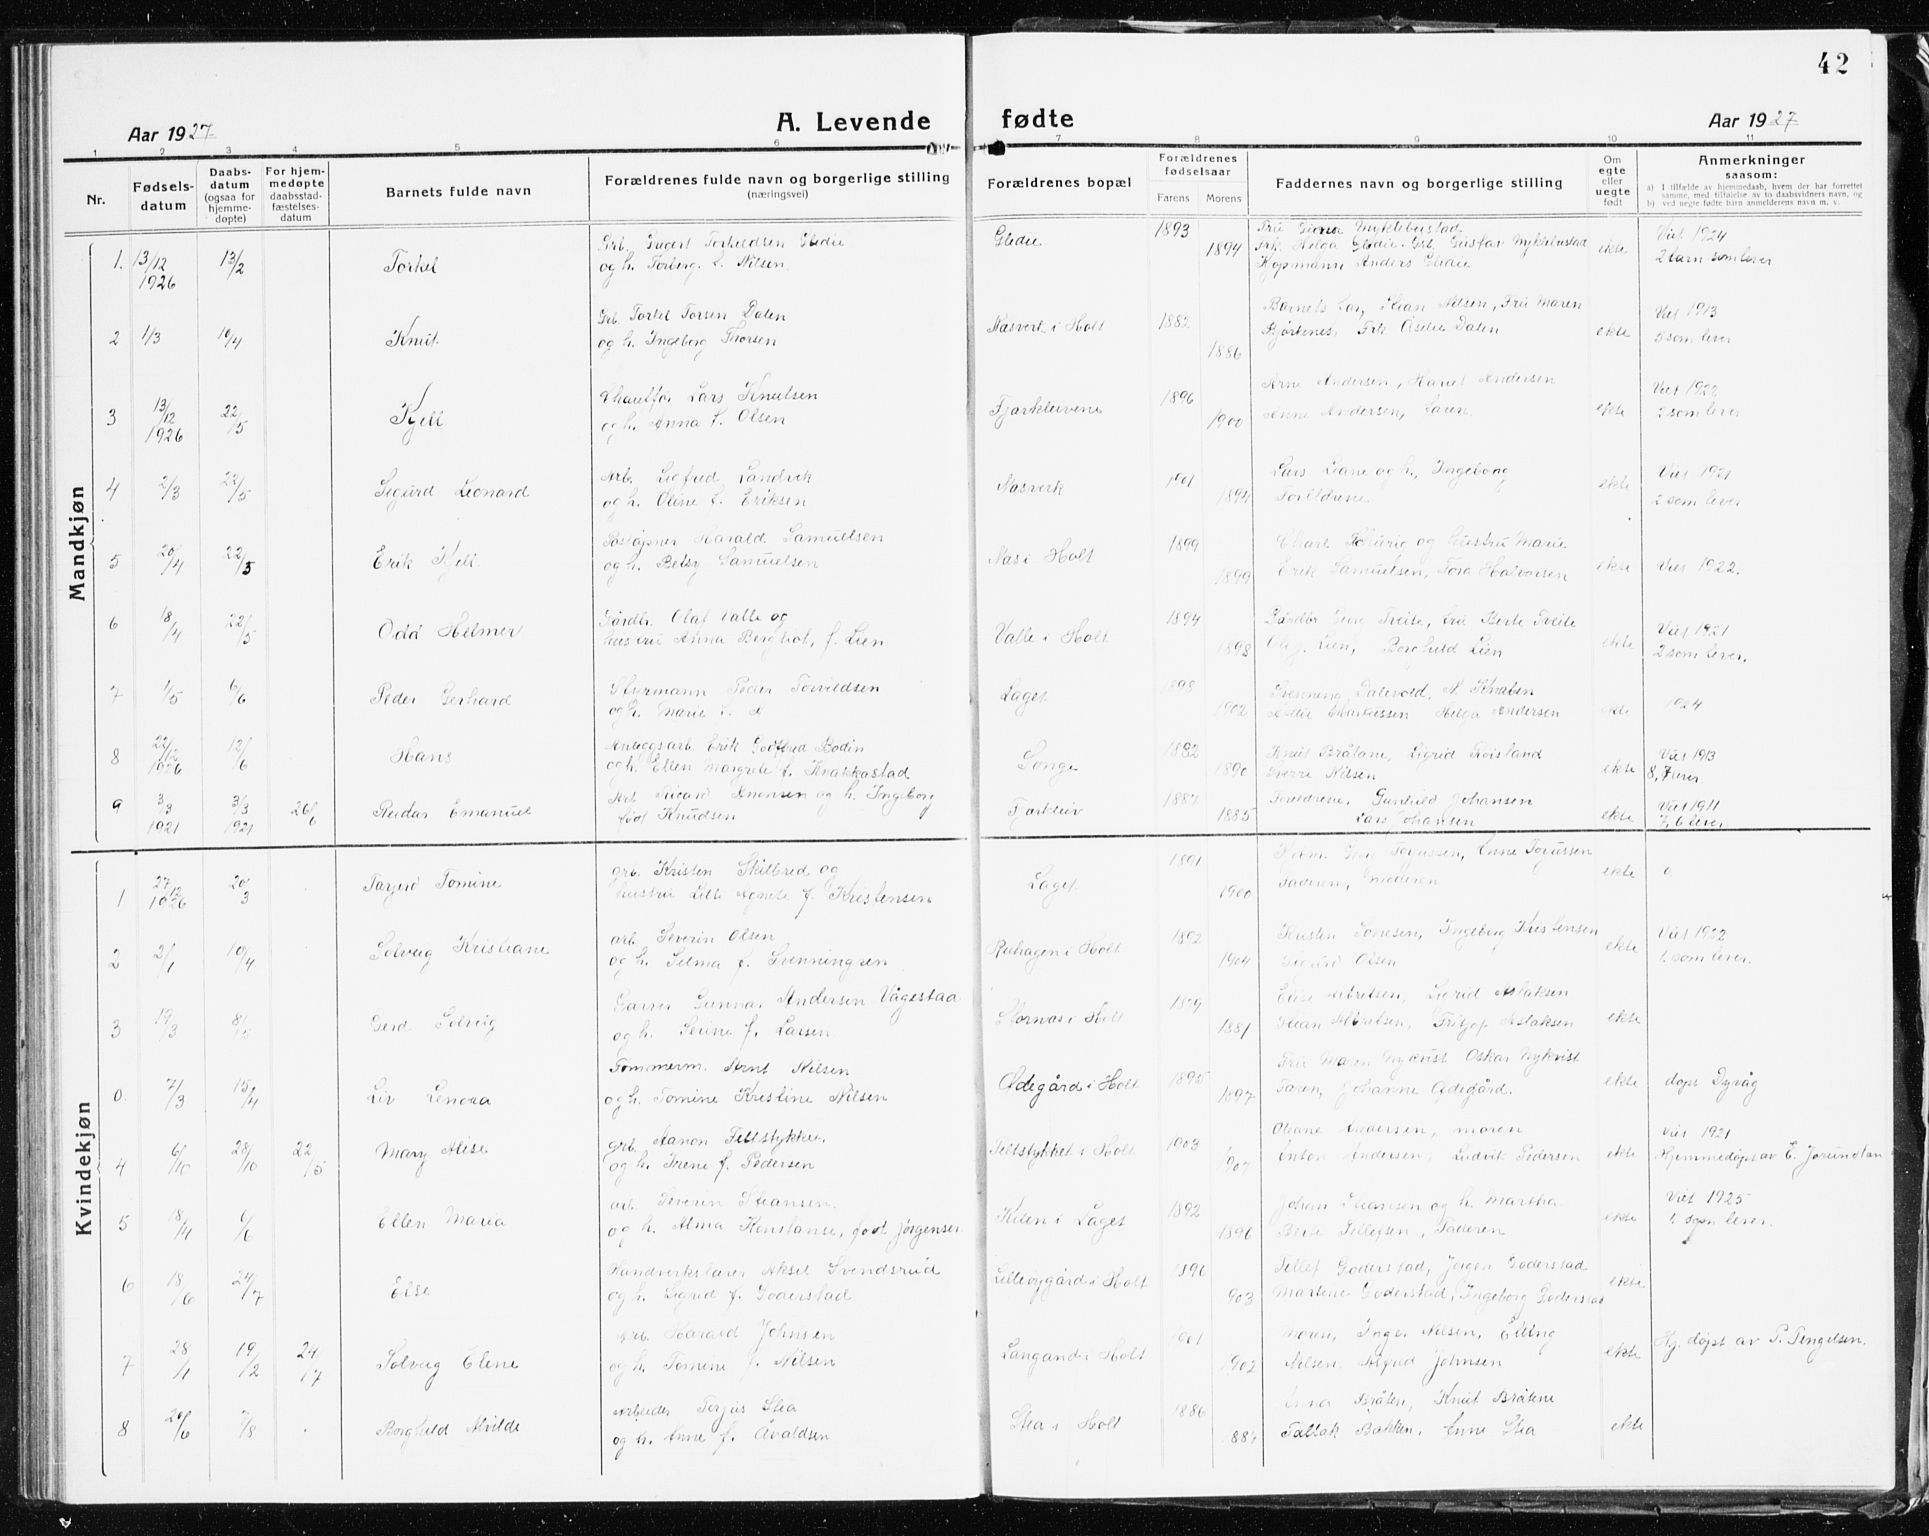 42
Aar 1927
A. Levende fødte
Aar 1927
1 2 3 4 5 6 7 8 9 10 11
Nr.
Fødsels-
datum
Daabs-
datum
(ogsaa for
hjemme-
døpte)
For hjem-
medøpte
daabsstad-
fæstelses-
datum
Barnets fulde navn
Forældrenes fulde navn og borgerlige stilling
(næringsvei)
Forældrenes bopæl
Forældrenes
fødselsaar
Farens Morens
Faddernes navn og borgerlige stilling
Om
egte
eller
uegte
født
Anmerkninger
saasom:
a) I tilfælde av hjemmedaab, hvem der har forrettet
samme, med tilføielse av to daabsvidners navn, og
b) ved uegte fødte barn anmelderens navn m. v.
Mandkjøn
1. 13/12 1926 13/2 Torkel
og h. Torborg f. Nilsen
1893 1894
ekte
Viet 1924
2 barn som lever
2 1/3 10/4 Knut
Grb. Torkel Torsen Dalen
og h. Ingeborg Thorsen
Nasverk i Holt
1882 1886
Bjørknes, Frk Aselie Dalen
ekte
Viet 1913
5 som lever
3 13/12 1926 22/5 Kjell
Lars Knutsen
og h. Anna f. Olsen
Fjarkleivene
1896 1900
Arne Andersen, Andersen
Anne Andersen, Faren
ekte
Viet 1922
2 som lever
4 2/3 22/5 Sigurd Leonard
Arb. Sigfred Landvik
og h. Oline f. Eriksen
Nasverk
1901 1894
Lars Liane og h. Ingeborg
Foreldrene
ekte
Viet 1921
2 som lever
5 20/4 22/5 Erik Kjell
Harald Samuelsen
og h. Betsy Samuelsen
Nas i Holt
1899 1899
og hustru Marie
Erik Samuelsen, Tora Halvorsen
ekte
Viet 1922.
6 18/4 22/5 Odd Helmer
Gårdbr. Olaf Valle og
hustru Anna Berghot, f. Lien
Valle i Holt
1894 1898
Treite, fru Berte Treite
Lien, Borghild Lien
ekte
Viet 1921
2 som lever.
7 1/5 6/6 Peder Gerhard
Styrmann Peder Torvildsen
og h. Marie f.
Laget
1898 1902
Svenning Dalevold, N. Knaben
Aselie Markussen Helga Andersen
ekte
1924
8 22/12 1926 12/6 Hans
Anleggsarb Erik Gotfred Bodin
og h. Ellen Margrete f. Krakkastad
Songe
1882 1890
Knut Bråtane, Sigrid Froisland
Sverre Nilsen
ekte
Viet 1913
8, 7 lever.
9 3/3 1921 3/3 1921 26/6 Reidar Emanuel
og h. Ingeborg
født Knudsen
Fjarkleiv
1887 1885
Foreldrene, Gunhild Johansen
Lars Johansen
ekte
Viet 1911
7, 6 lever
Kvindekjøn
1 27/12 1926 20/3 Tomine
grb. Kristen Skilbred og
hustru Lilli Agnete f. Kristensen
Laget
1891 1900
Torjussen, Anne Torjussen
Faderen, Moderen
ekte
0.
2 2/1 10/4 Solveig Kristiane
arb. Severin Olsen
og h. Selma f. Svenningsen
i Holt
1892 1904
Ingeborg Kristensen
Sigurd Olsen
ekte
Viet 1922
1. som lever.
3 19/3 8/5 Gerd Solveig
Garver Gunnar Andersen Vågestad
og h. Serine f. Larsen
Stornas i Holt
1879 1881
Else Albretsen, Sigrid Aslaksen
Stian Albretsen, Fritjof Aslaksen
ekte
0. 7/3 15/4 Liv Lenora
Tømmerm. Arnt Nilsen
og h. Tomine Kristine Nilsen
Ødegård i Holt
1895 1897
Fru Maren Nykvist Oskar Nykvist
Faren, Johanne Ødegård.
ekte
døpt Dyvåg
4 6/10 28/10 22/5 Mary Alise
grb. Aanon Fellstykket,
og h. Irene f. Pedersen
Fellstykket i Holt
1903 1907
Ohane Andersen, moren
Anton Andersen, Ludvik Pedersen
ekte
Viet 1921
Hjemmedøpt av E. Jorundlan
5 18/4 6/6 Ellen Maria
arb. Severin Stiansen
og h. Alma Konstanse, født Jørgensen
Kilen i Laget
1892 1896
Johan Stiansen og h. Martha
Berte Tellefsen, Faderen
ekte
Viet 1925
1. som lever.
6 18/6 24/7 Else
Handverkslærer Aksel Svendsrud
og h. Sigrid f. Goderstad
i Holt
1896 1903
Tellef Goderstad, Jørgen Goderstad
Martine Goderstad, Ingeborg Goderstad
ekte
7 28/1 19/2 24/7 Solveig Elene
Arb. Harald Johnsen
og h. Tomine f. Nilsen
Langand i Holt
1901 1902
Moren, Inga Nilsen, Elling
Nilsen Alfred Johnsen
ekte
Hj. døpt av P. Tengelsen.
8 20/6 7/8 Borghild Alvilde
Arbeider Torjus Stea
og h. Anne f. Avaldsen
Stea i Holt
1886 1884
Anna Bråten, Knut Bråtene
Bakken, Anne Stea
ekte